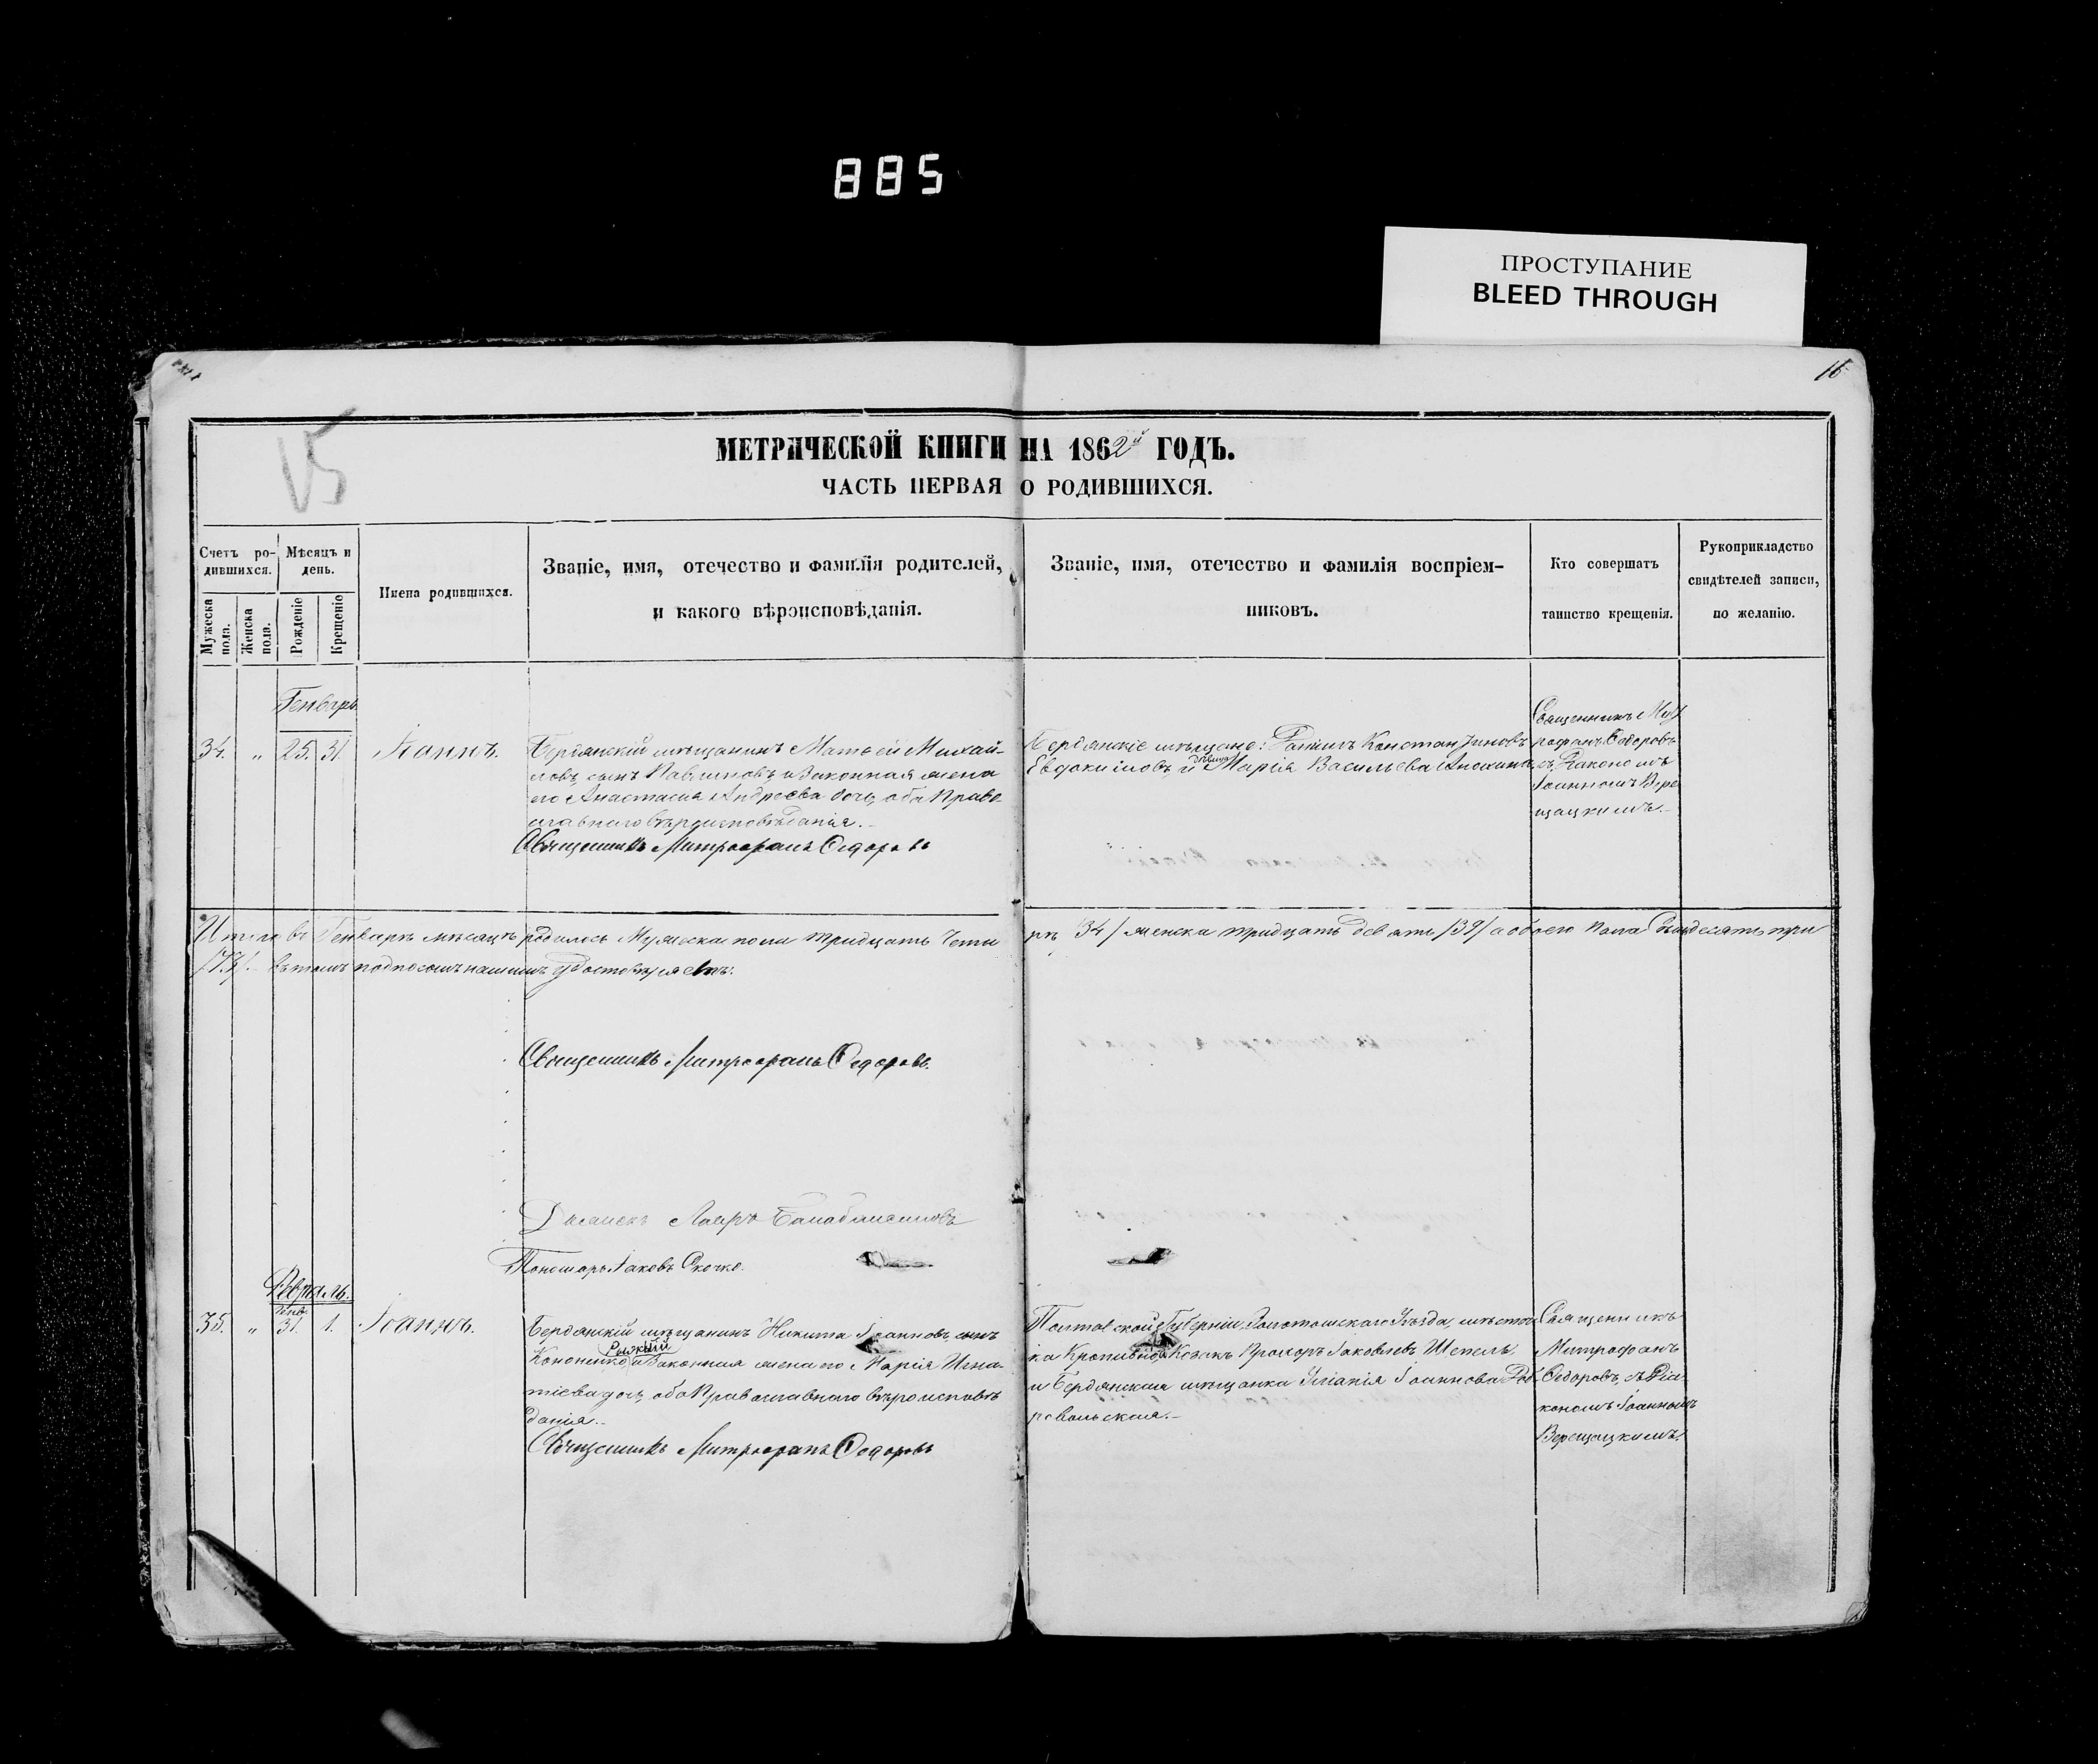 885
ПРОСТУПАНИЕ
BLEED THROUGH
16
15
МЕТРИЧЕСКОЙ КНИГИ НА 1862й ГОДЪ.
ЧАСТЬ ПЕРВАЯ О РОДИВШИХСЯ.
Счетъ ро-
дившихся.
Мужеска
пола.
Женска
пола.
Мѣсяцъ и
день.
Рожденіе
Крещеніе
Имена родившихся.
Званіе, имя, отечество и фамилія родителей,
и какого вѣроисповѣданія.
Званіе, имя, отечество и фамилія воспріем-
никовъ.
Кто совершатъ
таинство крещенія.
Рукоприкладство
свидѣтелей записи,
по желанію.
Генварь
34. „ 25. 31. Іоаннъ.
Бердянскій мѣщанинъ Матѳей Михай-
ловъ сынъ и законная жена
его Анастасія Андреева дочь, оба Право
славнаго вѣроисповѣданія.
Священникъ Митрофанъ Ѳедоровъ
Бердянскіе мѣщане: Константиновъ
Евдокимовъ и дѣвица Марія Васильева
Священникъ Мит
рофанъ Ѳедоровъ
съ Діакономъ
Іоанномъ Вере
щацкимъ.
Итого въ Генварѣ мѣсяцѣ родилось Мужеска пола тридцать четы
рѣ /34/ женска тридцать девять /39/ а обоего пола семьдесять три
/73/. въ томъ подписомъ нашимъ удостовѣряемъ:
Священникъ Митрофанъ Ѳедоровъ.
Пономарь Іаковъ
Февраль.
Генв.
35. „ 31. 1. Іоаннъ.
Бердянскій мѣщанинъ Никита Іоанновъ сынъ
Рыжкій
Кононенко и законная жена его Марія Игна-
тіева дочь, оба Православнаго вѣроисповѣ
данія.
Священникъ Митрофанъ Ѳедоровъ
Полтавской Губерніи Золотоношскаго Уѣзда, мѣстеч
ка Кропивной Козакъ Прохоръ Іаковлевъ Шепель
и Бердянская мѣщанка Уліанія Іоаннова Доб
ровольская.
Священникъ
Митрофанъ
Ѳедоровъ, съ Діа
кономъ Іоанномъ
Верещацкимъ.